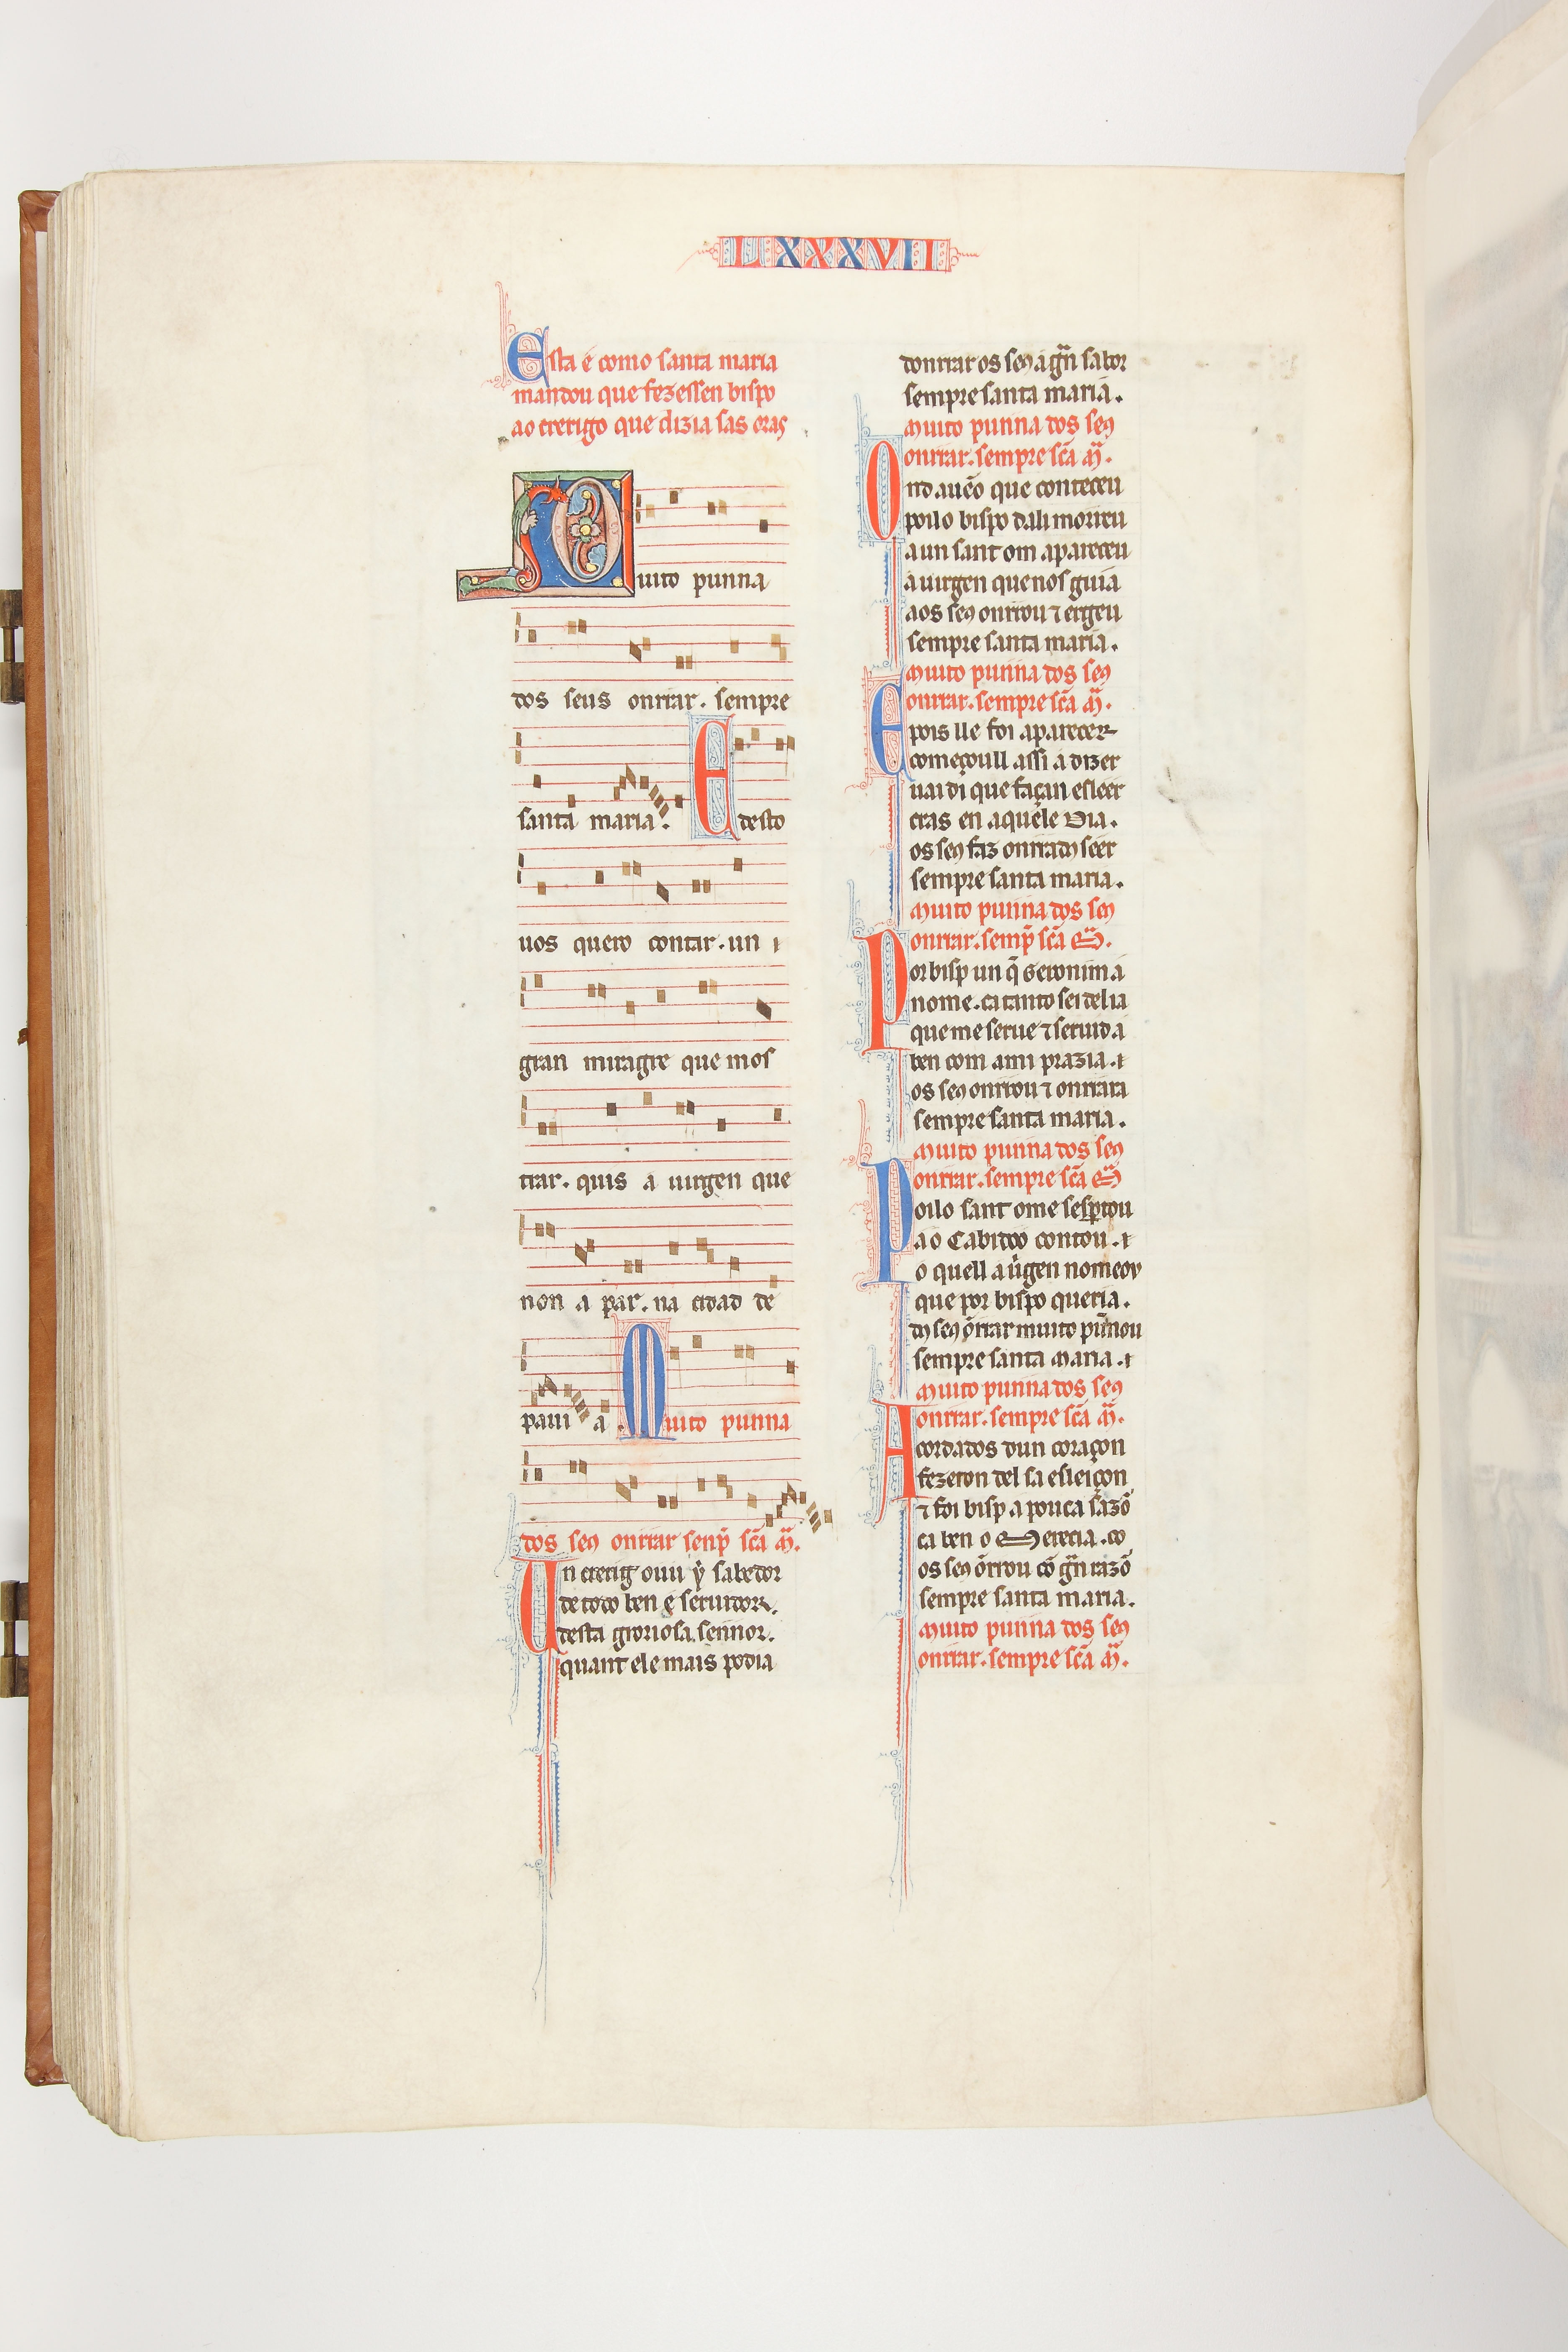 LXXXVII
Esta é como santa maria
mandou que fezessen bispo
ao crerigo que dizia sas oras
Muito punna
dos seus onrrar. sempre
santa maria. E desto
uos quero contar. un
gran miragre que mos
trar. quis a uirgen que
non a par. na cidad de
paui a. Muito punna
dos seꝯ onrrar senp̃ sc̃a m̃a.
Un crerig ouu ẏ sabedor
de todo ben e seruidor.
desta groriosa sennor.
quant ele mais podia
donrrar os seꝯ a gñ sabor
sempre santa maria.
Muito punna dos seꝯ
onrrar. sempre sc̃a m̃a.
Ond aueo que conteceu
poilo bispo dali morreu
a un sant om apareceu
a uirgen que nos guia
aos seꝯ onrrou ⁊ ergeu
sempre santa maria.
Muito punna dos seꝯ
onrrar. sempre sc̃a m̃a.
E pois lle foi aparecer
começoull assi a dizer
uai di que façan esleer
cras en aquele dia.
os seꝯ faz onrradꝯ seer
sempre santa maria.
Muito punna dos seꝯ
onrrar. semp̃ sc̃a m̃.
Por bisp un q̃ geronim a
nome. ca tanto sei del ia
que me serue ⁊ seruid a
ben com a mi prazia.
os seꝯ onrrou ⁊ onrrara
sempre santa maria.
Muito punna dos seꝯ
onrrar. sempre sc̃a m̃
Poilo sant ome sesp̃tou
ao Cabidoo contou.
o quell a uirgen nomeou
que por bispo queria.
dꝯ seꝯ õrrar muito pũnou
sempre santa Maria.
Muito punna dos seꝯ
onrrar. sempre sc̃a m̃a.
Acordados dun coraçon
fezeron del sa esleiçon
⁊ foi bisp a pouca sazõ
ca ben o Merecia. co
os seꝯ õrrou cõ gñ razõ
sempre santa maria.
Muito punna dos seꝯ
onrrar. sempre sc̃a m̃a.